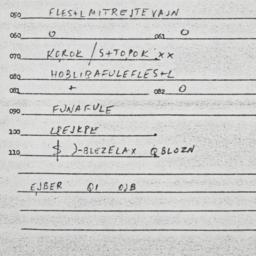 050 FLES+LMITREJTEVAJN
060 O 061 O
070 KOROK /S+TOPOK.xx
080 HOBLIRAFULEFLES+L
081 + 082 O
090 FUNAFULE
100 LPEJKPE .
110 $ )-BLEZELAX QBLOZN
EJBER QI OJB